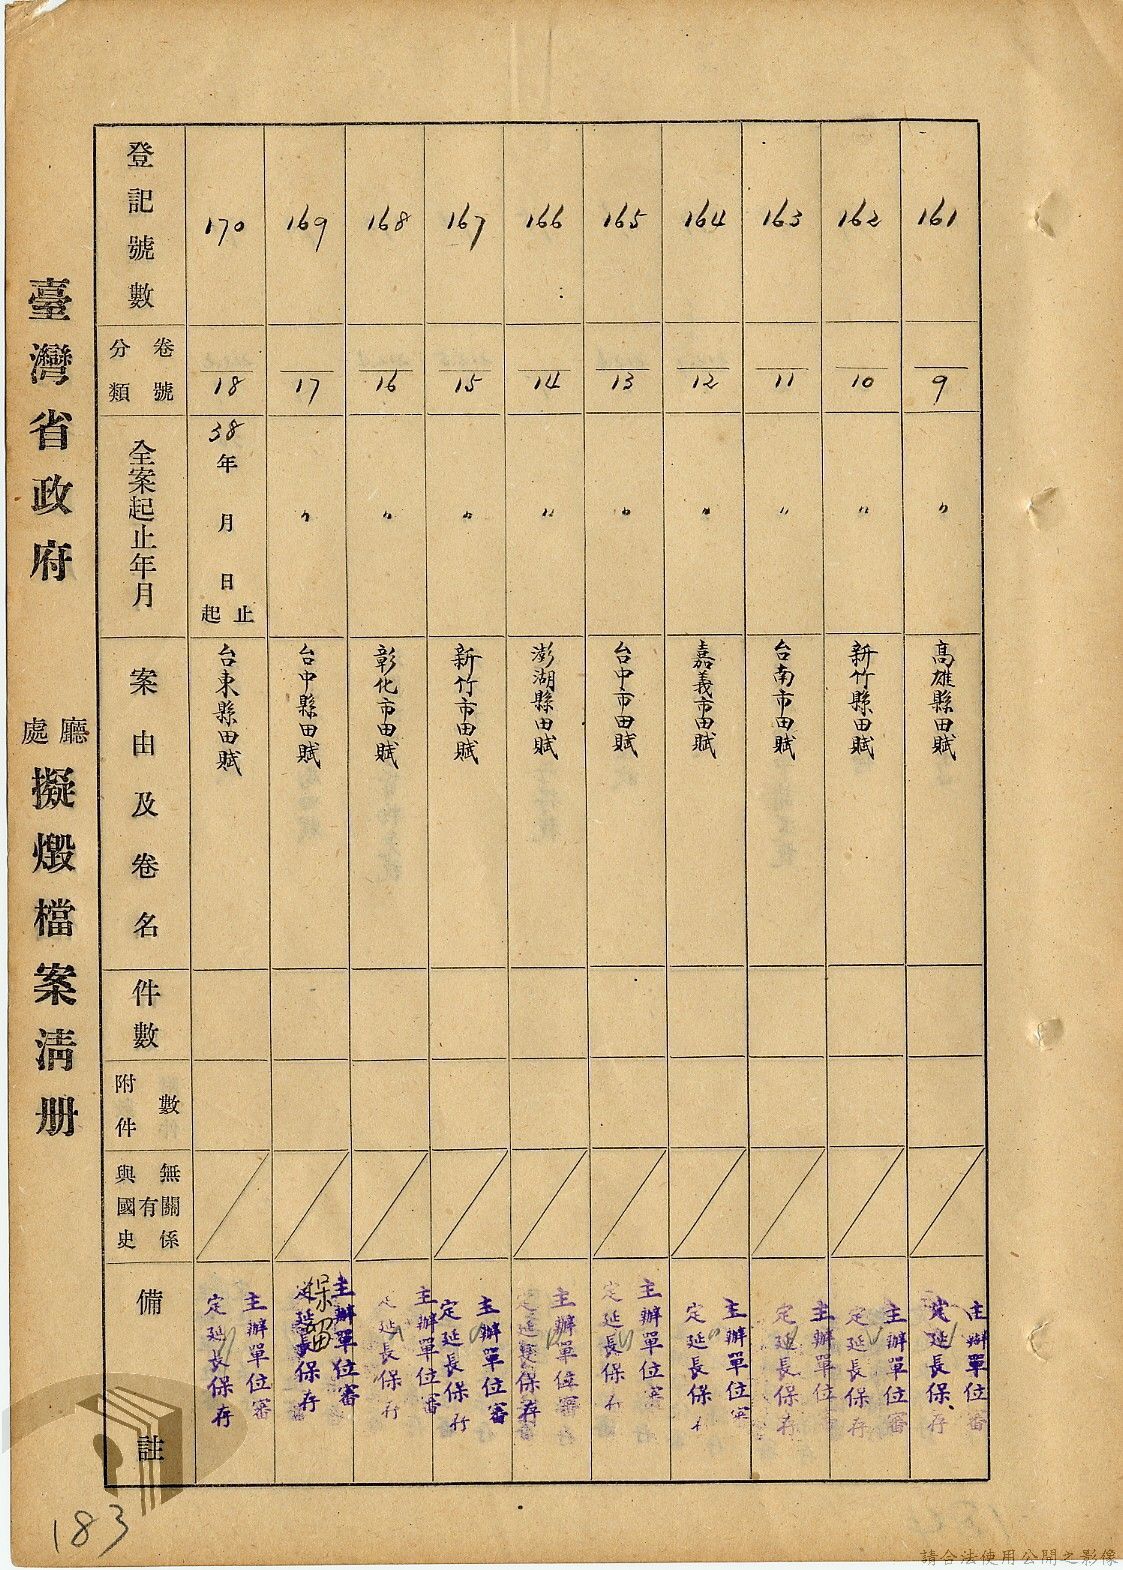 161
9
〃
高雄縣田賦
主辦單位審
定延長保存
162
10
〃
新竹縣田賦
主辦單位審
定延長保存
163
11
〃
台南市田賦
主辦單位審
定延長保存
164
12
〃
嘉義市田賦
主辦單位審
定延長保存
165
13
〃
台中市田賦
主辦單位審
定延長保存
166
14
〃
澎湖縣田賦
主辦單位審
定延長保存
167
15
〃
新竹市田賦
主辦單位審
定延長保存
168
16
〃
彰化市田賦
主辦單位審
定延長保存
169
17
〃
台中縣田賦
主辦單位審
定延長保存
保留
170
18
38年 月 日起止
台東縣田賦
主辦單位審
定延長保存
登記號數
卷號
分類
全案起止年月
案由及卷名
件數
附件數
與國史有無關係
備註
臺灣省政府 廳處 擬燬檔案清册
183
請合法使用公開之影像